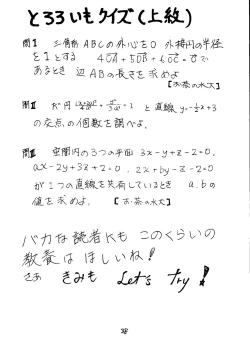 とろろいもクイズ(上級)
問Ⅰ 三角形ABCの外心をO 外接円の半径
を1とする 4OA+5OB+6OC=0で
あるとき 辺ABの長さを求めよ
【お茶の水大】
問Ⅱ だ円 と直線 y=-½x+3
の交点の個数を調べよ.
問Ⅲ 空間内の3つの平面 3x-y+z-2=0,
ax-2y+3z+2=0, 2x+by-z-2=0
が1つの直線を共有しているとき a.bの
値を求めよ. 【お茶の水大】
バカな読者Kも このくらいの
教養は ほしいね!
さあ きみも Let's Try!